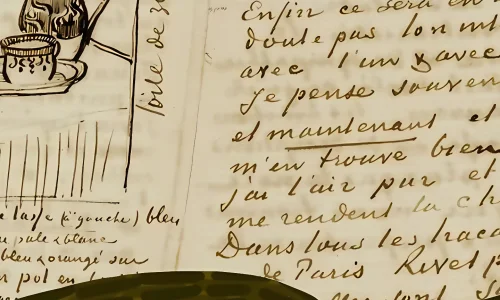 toile de 30
e tasse (à gauche) bleu
pale & blanc
bleu & orangé sur
pot en
Enfin ce sera en
doute pas l'on m'
avec l'un & avec
Je pense souven
et maintenant et
m'en trouve bien
j'ai l'air pur et
me rendent la ch
Dans tous les tracas
de Paris Rivet p